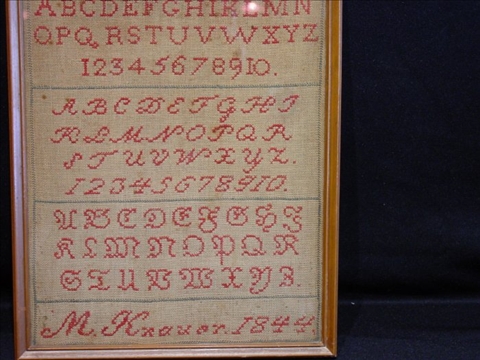 ABCDEFGHIKLMN
OPQ RSTUVWXYZ
12345678910.
ABCDEFGHI
KLMNOPQR
STUVWXYZ.
12345678910.
ABCDEFGHI
KLMNOPQR
STUVWXYZ.
M. Knauer. 1844